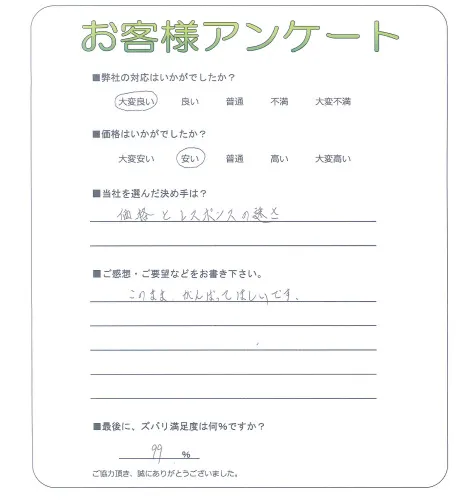 お客様アンケート
■弊社の対応はいかがでしたか？
大変良い 良い 普通 不満 大変不満
■価格はいかがでしたか？
大変安い 安い 普通 高い 大変高い
■当社を選んだ決め手は？
価格とレスポンスの速さ
■ご感想・ご要望などをお書き下さい。
このまま、がんばってほしいです。
■最後に、ズバリ満足度は何%ですか？
99 %
ご協力頂き、誠にありがとうございました。